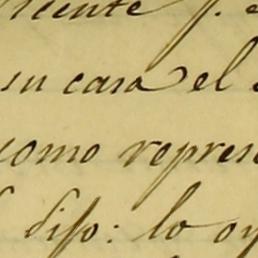 cente p. e
su casa el
como repres
dijo: lo oy